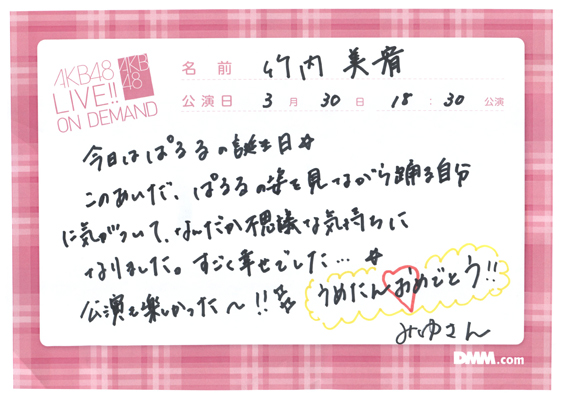 AKB48
LIVE!!
ON DEMAND
AKB
48
名前 竹内 美宥
公演日 3月30日 18:30公演
今日はぱるるの誕生日☆
このあいだ、ぱるるの姿を見ながら踊る自分
に気がついて、なんだか不思議な気持ちに
なりました。すごく幸せでした…☆
公演も楽しかった〜!!☆
うめたんおめでとう!!
みゆさん
DMM.com